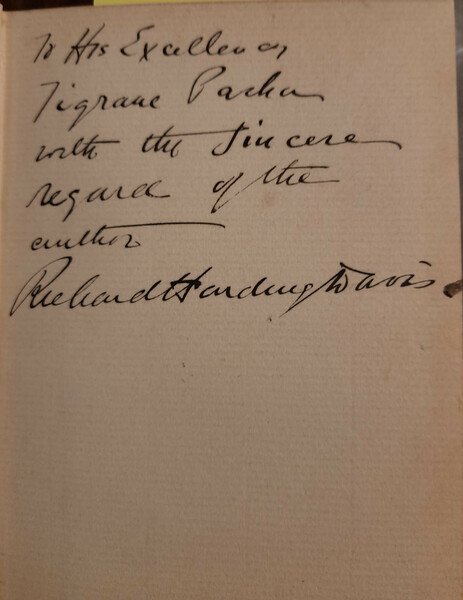 To His Excellency
Tigrane Pacha
with the sincere
regard of the
author
Richard Harding Davis.